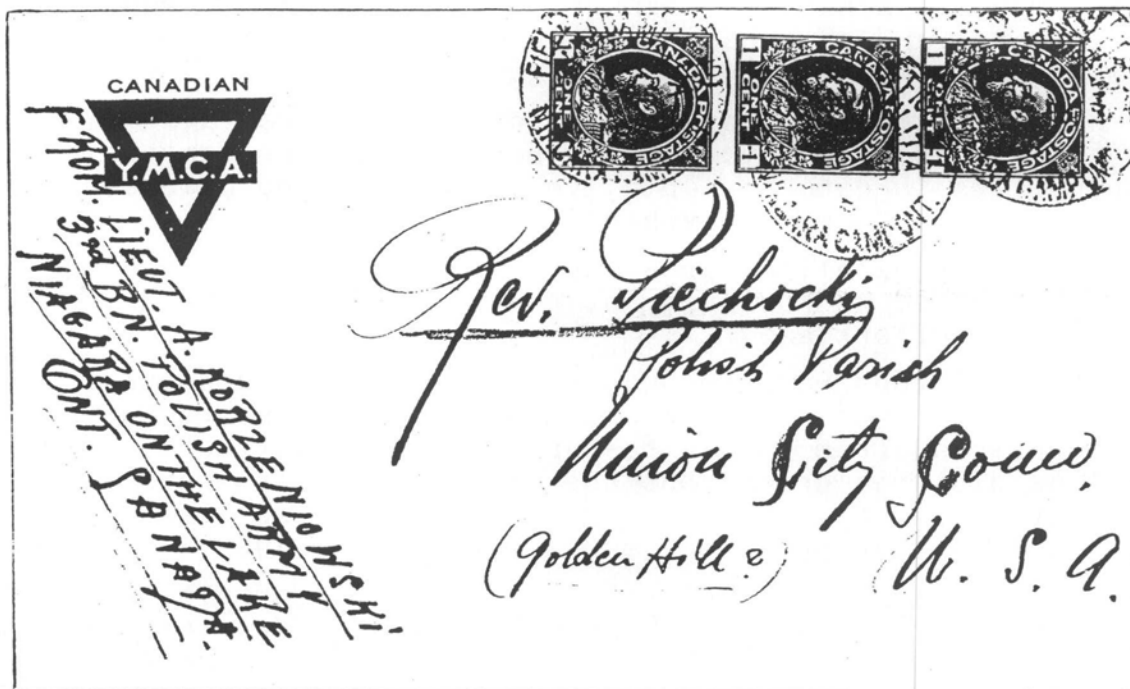 CANADIAN
Y.M.C.A.
FROM. LIEUT. A. KORZENIOWSKI
3rd BN. POLISH ARMY
NIAGARA ON THE LAKE
ONT. CANADA.
1 CANADA POSTAGE 1
ONE CENT
1 CANADA POSTAGE 1
ONE CENT
1 CANADA POSTAGE 1
ONE CENT
NIAGARA CAMP ONT.
Rev. Piechocki
Polish Parish
Union City Conn.
(Golden Hill?)
U. S. A.